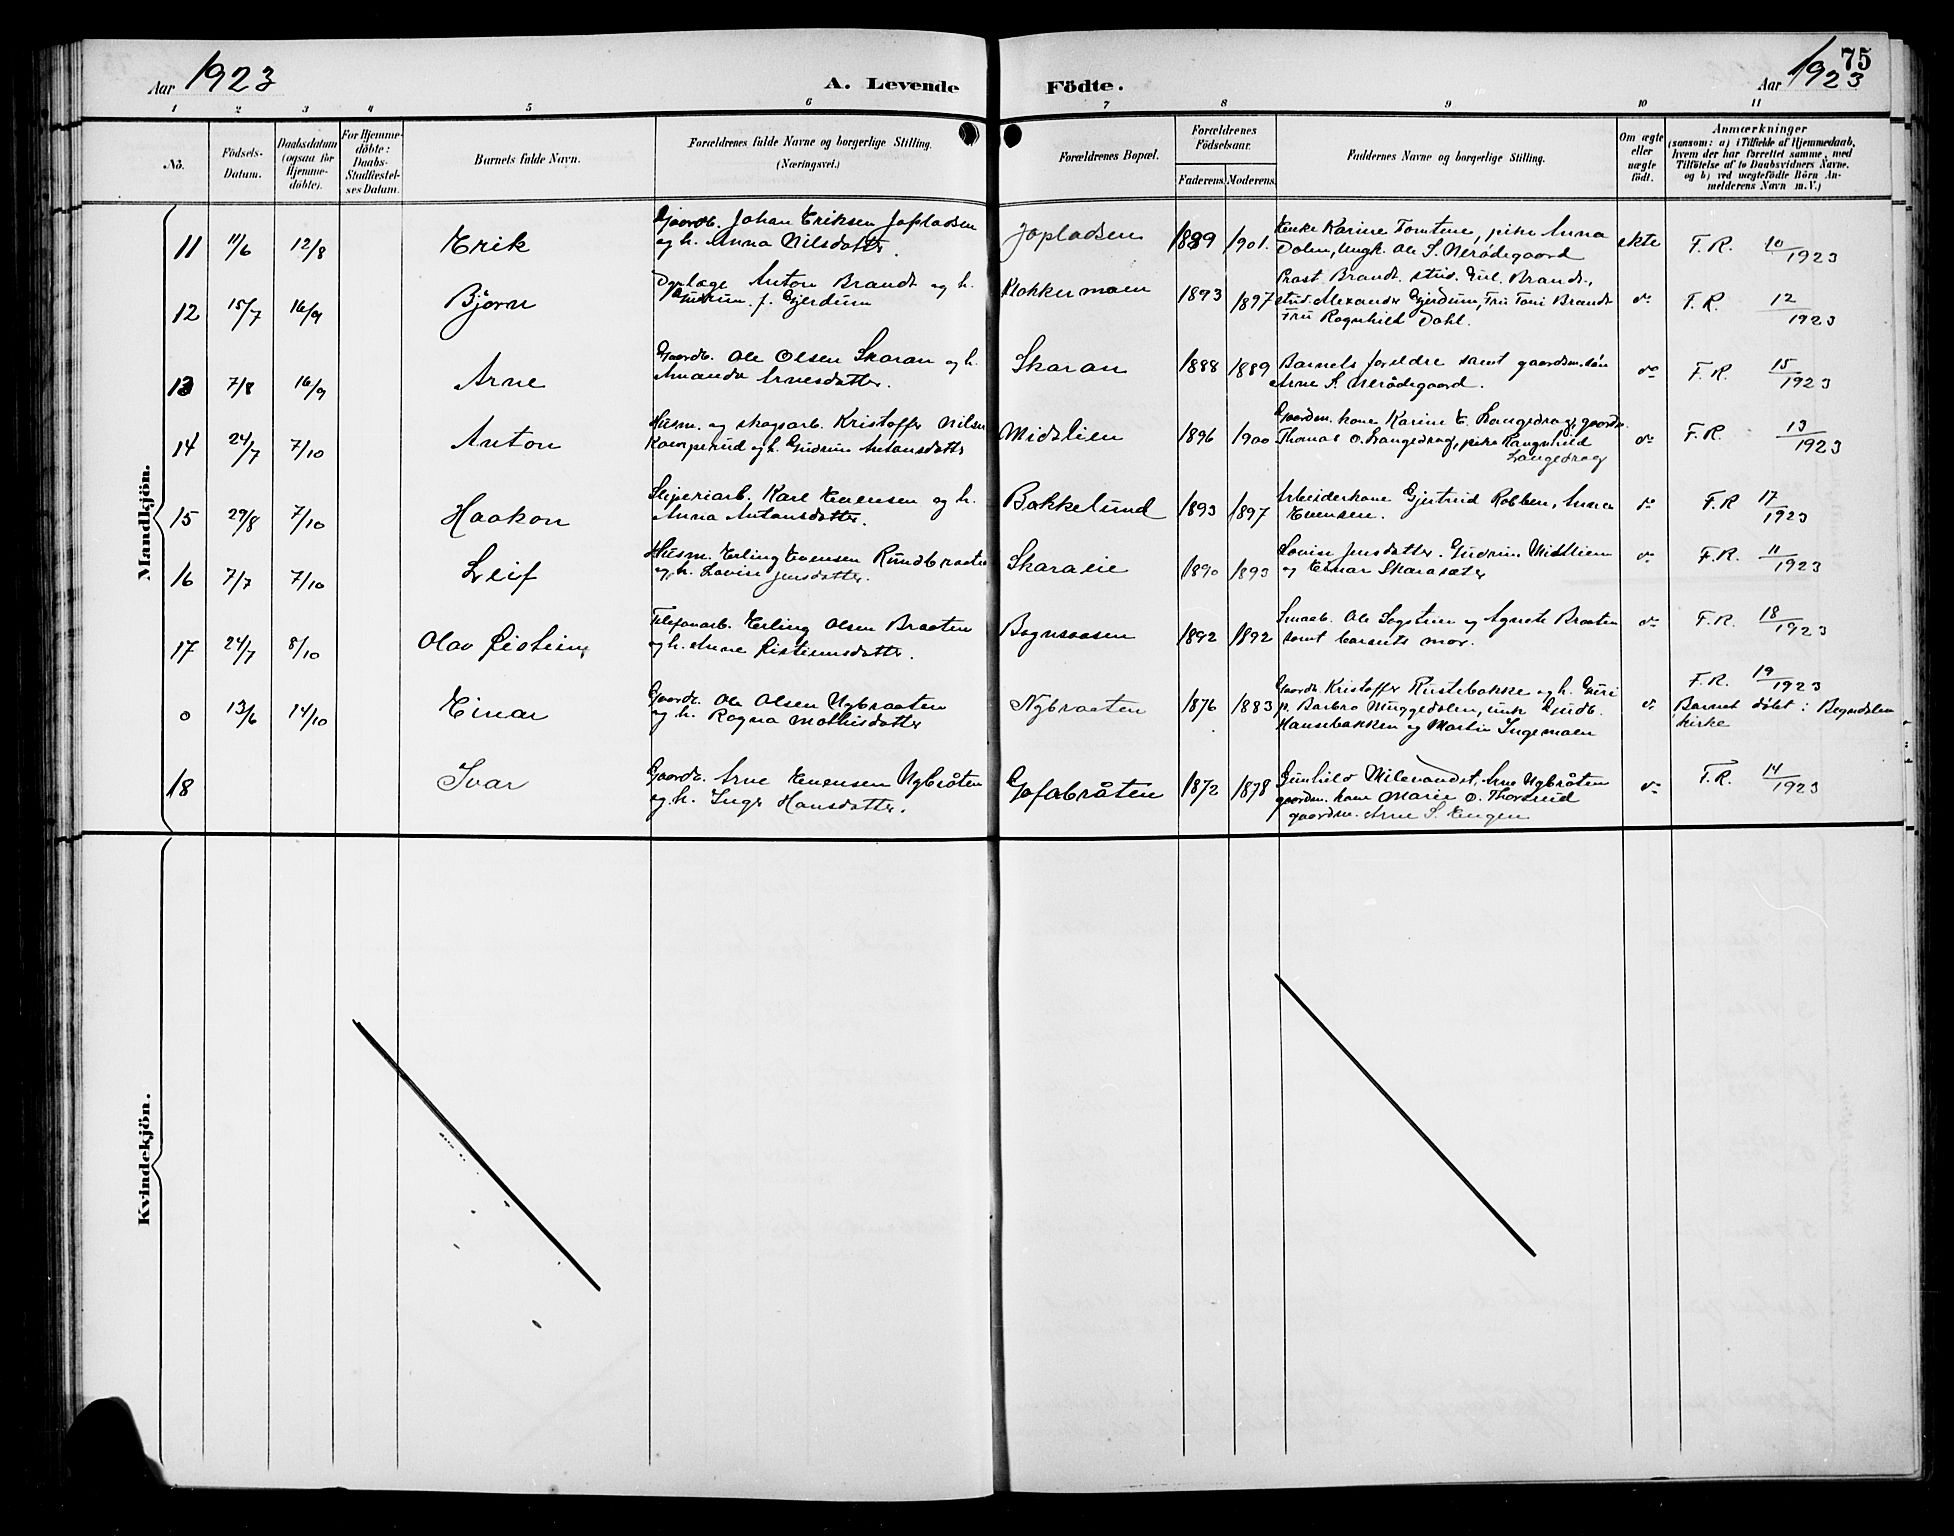 75
Aar 1923
A. Levende Födte.
Aar 1923
1 2 3 4 5 6 7 8 9 10 11
No.
Födsels-Datum.
Daabsdatum (ogsaa för Hjemme-döbte).
For Hjemme-döbte: Daabs-Stadfæstel-ses Datum.
Barnets fulde Navn.
Forældrenes fulde Navne og borgerlige Stilling. (Næringsvei.)
Forældrenes Bopæl.
Forældrenes Födselsaar.
Faderens. Moderens.
Faddernes Navne og borgerlige Stilling.
Om ægte eller uægte födt.
Anmærkninger
(saasom: a) i Tilfælde af Hjemmedaab, hvem der har forrettet samme, med Tilföielse af to Daabsvidners Navne, og b) ved uægtefödte Börn An-melderens Navn m. V.)
Mandkjön.
11 11/6 12/8 Erik
Gaardb. Johan Eriksen Jopladsen
og h. Anna Nilsdatter.
Jopladsen 1889 1901.
Enke Karine Tomtene, pike Anna
Dolen, Ungk. Ole S. Nerødegaard
ekte F. R. 10/1923
12 15/7 16/9 Bjørn
Dyrlæge Anton Brandt og h.
Gudrun f. Gjerdrum
Klokkermoen 1893 1897
Prost Brandt, stud. Gul. Brandt,
stud. Alexander Gjerdrum, Fru Toni Brandt
Fru Ragnhild Dahl.
do F. R. 12/1923
13 7/8 16/9 Arne
Gaardb. Ole Olsen Skaran og h.
Amanda Arnesdatter.
Skaran 1888 1889
Barnets foreldre samt gaardm. søn
Arne S. Nerødegaard.
do F. R. 15/1923
14 24/7 7/10 Anton
Husm. og skogsarb. Kristoffer Nilsen
Kamperud og h. Gudrun Antonsdatter
Midtlien 1896 1900
Gaardm. kone Karine E. Langedrag, gaardm.
Thomas O. Langedrag, pike Ragnhild
Langedrag
do F. R. 13/1923
15 29/8 7/10 Haakon
Sliperiarb. Karl Evensen og h.
Anna Antonsdatter.
Bakkelund 1893 1897
Arbeiderkone Gjertrud Robben, Anna
Evensen.
do F. R 17/1923
16 7/7 7/10 Leif
Husm. Erling Evensen Rundbraaten
og h. Lovise Jensdatter.
Skaraeie 1890 1893
Lovise Jensdatter. Gudrun Midtlien
og Einar Skarasæter
do F. R. 11/1923
17 24/7 8/10 Olav Øistein
Telefonarb. Erling Olsen Braaten
og h. Anne Øistensdatter.
Bagnsaasen 1892 1892
Smaab. Ole Sogstien og Agnete Braaten
samt barnets mor.
do F. R. 18/1923
0 13/6 14/10 Einar
Gaardb. Ole Olsen Nybraaten
og h. Ragna Mathisdatter
Nybraaten 1876 1883
Gaardb. Kristoffer Rustebakke og h. Guri
p. Barbro Muggedolen, unk Gudb.
Hansebakken og Martin Ingemoen
do F. R. 19/1923
Barnet døbt i Begndalen
kirke
18 Ivar
Gaardb. Arne Evensen Nybråten
og h. Inge Hansdatter.
Gofabråten 1872 1878
Gunhild Milevandet, Arne Nybråten
gaardm. kone Marie O. Thorsrud
gaardm. Arne S. Engen
do F. R. 14/1923
Kvindekjön.